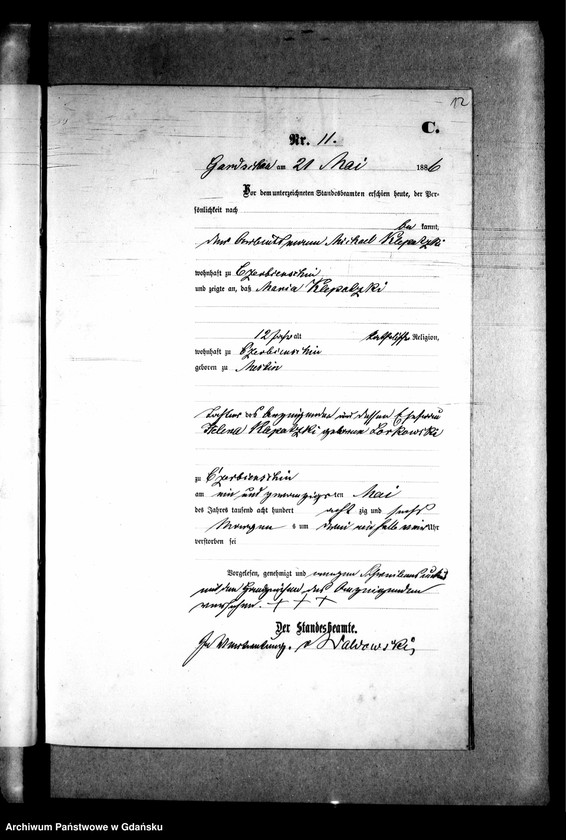 12
C.
Nr. 11.
Gardschau am 21 Mai 1886
Vor dem unterzeichneten Standesbeamten erschien heute, der Per-
sönlichkeit nach
be kannt,
der Arbeitsmann Michael Klepatzki
wohnhaft zu Czerbienschin
und zeigte an, daß Maria Klepatzki
12 Jahr alt katholischer Religion,
wohnhaft zu Czerbienschin
geboren zu
Tochter des Anzeigenden und dessen Ehefrau
Helena Klepatzki geborene Lorkowski
zu Czerbienschin
am ein und zwanzigsten Mai
des Jahres tausend acht hundert acht zig und sechs
Morgens um drei ein halb Uhr
verstorben sei
Vorgelesen, genehmigt und wegen Schreibensunkunde
mit den Handzeichen des Anzeigenden
versehen. + + +
Der Standesbeamte.
In Vertretung.
Archiwum Państwowe w Gdańsku